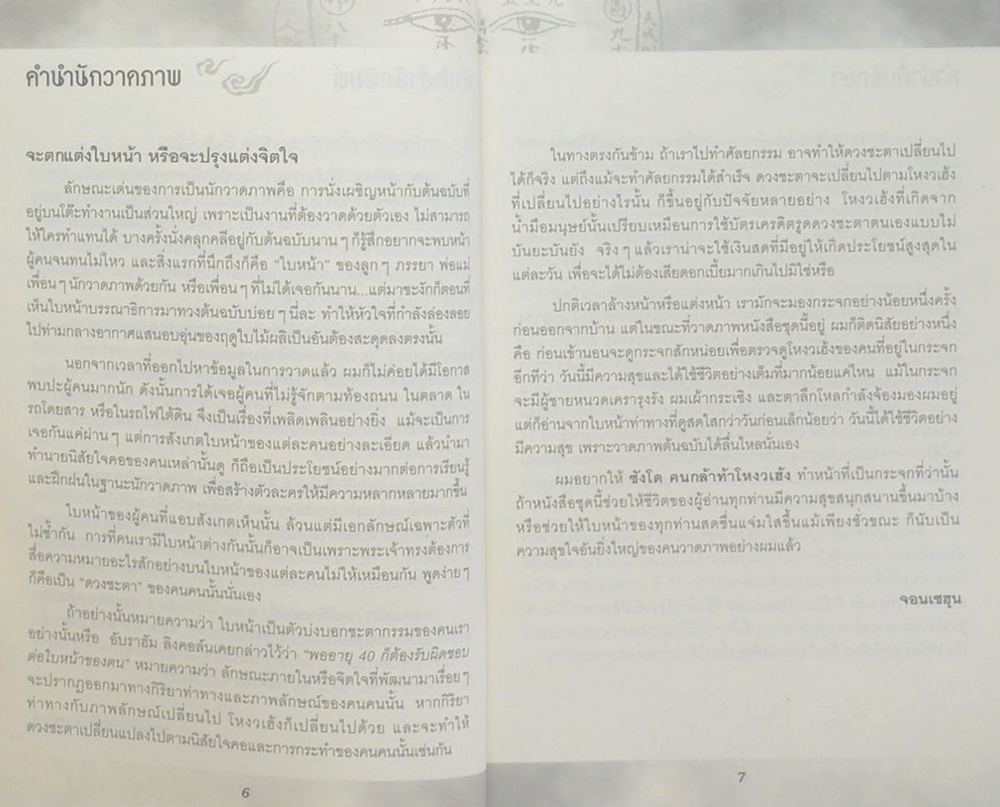 คำนำนักวาดภาพ
จะตกแต่งใบหน้า หรือจะปรุงแต่งจิตใจ
ลักษณะเด่นของการเป็นนักวาดภาพคือ การนั่งเผชิญหน้ากับต้นฉบับที่
อยู่บนโต๊ะทำงานเป็นส่วนใหญ่ เพราะเป็นงานที่ต้องวาดด้วยตัวเอง ไม่สามารถ
ให้ใครทำแทนได้ บางครั้งนั่งคลุกคลีอยู่กับต้นฉบับนานๆ ก็รู้สึกอยากจะพบหน้า
ผู้คนจนทนไม่ไหว และสิ่งแรกที่นึกถึงก็คือ “ใบหน้า” ของลูกๆ ภรรยา พ่อแม่
เพื่อนๆ นักวาดภาพด้วยกัน หรือเพื่อนๆ ที่ไม่ได้เจอกันนาน...แต่มาชะงักก็ตอนที่
เห็นใบหน้าบรรณาธิการมาทวงต้นฉบับบ่อยๆ นี่ละ ทำให้หัวใจที่กำลังล่องลอย
ไปท่ามกลางอากาศแสนอบอุ่นของฤดูใบไม้ผลิเป็นอันต้องสะดุดลงตรงนั้น
นอกจากเวลาที่ออกไปหาข้อมูลในการวาดแล้ว ผมก็ไม่ค่อยได้มีโอกาส
พบปะผู้คนมากนัก ดังนั้นการได้เจอผู้คนที่ไม่รู้จักตามท้องถนน ในตลาด ใน
รถโดยสาร หรือในรถไฟใต้ดิน จึงเป็นเรื่องที่เพลิดเพลินอย่างยิ่ง แม้จะเป็นการ
เจอกันแค่ผ่านๆ แต่การสังเกตใบหน้าของแต่ละคนอย่างละเอียด แล้วนำมา
ทำนายนิสัยใจคอของคนเหล่านั้นดู ก็ถือเป็นประโยชน์อย่างมากต่อการเรียนรู้
และฝึกฝนในฐานะนักวาดภาพ เพื่อสร้างตัวละครให้มีความหลากหลายมากขึ้น
ใบหน้าของผู้คนที่แอบสังเกตเห็นนั้น ล้วนแต่มีเอกลักษณ์เฉพาะตัวที่
ไม่ซ้ำกัน การที่คนเรามีใบหน้าต่างกันนั้นก็อาจเป็นเพราะพระเจ้าทรงต้องการ
สื่อความหมายอะไรสักอย่างบนใบหน้าของแต่ละคนไม่ให้เหมือนกัน พูดง่ายๆ
ก็คือเป็น “ดวงชะตา” ของคนคนนั้นนั่นเอง
ถ้าอย่างนั้นหมายความว่า ใบหน้าเป็นตัวบ่งบอกชะตากรรมของคนเรา
อย่างนั้นหรือ อับราฮัม ลิงคอล์นเคยกล่าวไว้ว่า “พออายุ 40 ก็ต้องรับผิดชอบ
ต่อใบหน้าของตน” หมายความว่า ลักษณะภายในหรือจิตใจที่พัฒนามาเรื่อยๆ
จะปรากฏออกมาทางกิริยาท่าทางและภาพลักษณ์ของคนคนนั้น หากกิริยา
ท่าทางกับภาพลักษณ์เปลี่ยนไป โหงวเฮ้งก็เปลี่ยนไปด้วย และจะทำให้
ดวงชะตาเปลี่ยนแปลงไปตามนิสัยใจคอและการกระทำของคนคนนั้นเช่นกัน
6
ในทางตรงกันข้าม ถ้าเราไปทำศัลยกรรม อาจทำให้ดวงชะตาเปลี่ยนไป
ได้ก็จริง แต่ถึงแม้จะทำศัลยกรรมได้สำเร็จ ดวงชะตาจะเปลี่ยนไปตามโหงวเฮ้ง
ที่เปลี่ยนไปอย่างไรนั้น ก็ขึ้นอยู่กับปัจจัยหลายอย่าง โหงวเฮ้งที่เกิดจาก
น้ำมือมนุษย์นั้นเปรียบเหมือนการใช้บัตรเครดิตรูดดวงชะตาตนเองแบบไม่
บันยะบันยัง จริงๆ แล้วเราน่าจะใช้เงินสดที่มีอยู่ให้เกิดประโยชน์สูงสุดใน
แต่ละวัน เพื่อจะได้ไม่ต้องเสียดอกเบี้ยมากเกินไปมิใช่หรือ
ปกติเวลาล้างหน้าหรือแต่งหน้า เรามักจะมองกระจกอย่างน้อยหนึ่งครั้ง
ก่อนออกจากบ้าน แต่ในขณะที่วาดภาพหนังสือชุดนี้อยู่ ผมก็ติดนิสัยอย่างหนึ่ง
คือ ก่อนเข้านอนจะดูกระจกสักหน่อยเพื่อตรวจดูโหงวเฮ้งของคนที่อยู่ในกระจก
อีกทีว่า วันนี้มีความสุขและได้ใช้ชีวิตอย่างเต็มที่มากน้อยแค่ไหน แม้ในกระจก
จะมีผู้ชายหนวดเครารุงรัง ผมเผ้ากระเซิง และตาลึกโหลกำลังจ้องมองผมอยู่
แต่ก็อ่านจากใบหน้าท่าทางที่ดูสดใสกว่าวันก่อนเล็กน้อยว่า วันนี้ได้ใช้ชีวิตอย่าง
มีความสุข เพราะวาดภาพต้นฉบับได้ลื่นไหลนั่นเอง
ผมอยากให้ ซังโด คนกล้าท้าโหงวเฮ้ง ทำหน้าที่เป็นกระจกที่ว่านั้น
ถ้าหนังสือชุดนี้ช่วยให้ชีวิตของผู้อ่านทุกท่านมีความสุขสนุกสนานขึ้นมาบ้าง
หรือช่วยให้ใบหน้าของทุกท่านสดชื่นแจ่มใสขึ้นแม้เพียงชั่วขณะ ก็นับเป็น
ความสุขใจอันยิ่งใหญ่ของคนวาดภาพอย่างผมแล้ว
จอนเซฮุน
7